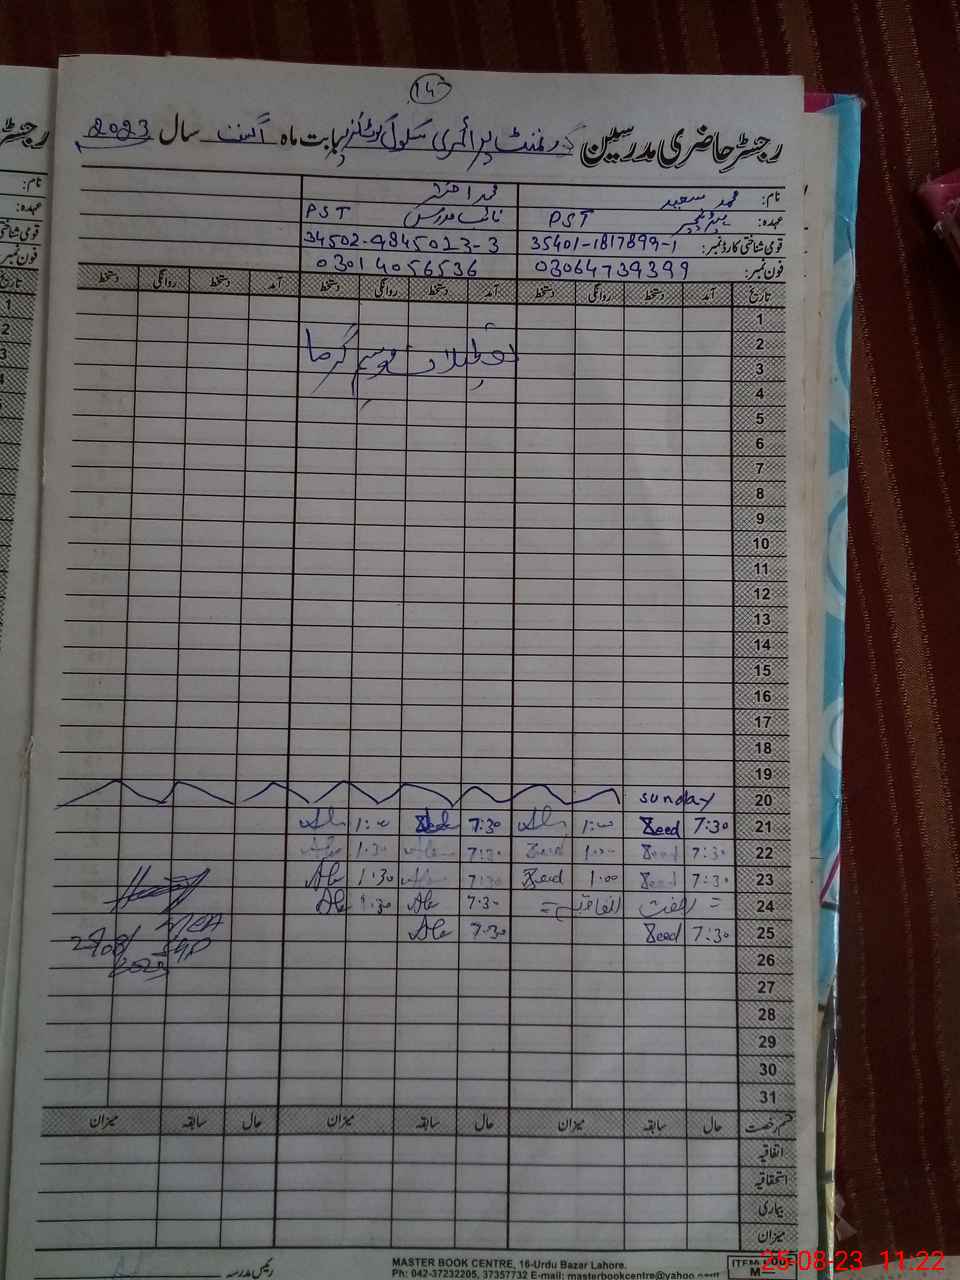 14
رجسٹر حاضری مدرسین گورنمنٹ پرائمری سکول بابت ماہ اگست سال 2023
نام: محمد سعید محمد احمد
عہدہ: PST نائب مدرس PST
قومی شناختی کارڈ نمبر: 35401-1817899-1 34502-9845023-3
فون نمبر: 03064739399 03014056536
تاریخ آمد دستخط روانگی دستخط آمد دستخط روانگی دستخط آمد دستخط روانگی دستخط
1
2
تعطیلات موسم گرما
3
4
5
6
7
8
9
10
11
12
13
14
15
16
17
18
19
20 sunday
21 7:30 Saeed 1:00 7:30 1:00
22 7:30 Saeed 1:00 7:30 1:30
23 7:30 Saeed 1:00 Saeed 7:30 1:30
24 = رخصت اتفاقیہ = 7:30 1:30
25 7:30 Saeed 7:30
26
27
28
29
30
31
قسم رخصت حال سابقہ میزان حال سابقہ میزان حال سابقہ میزان
اتفاقیہ
استحقاقیہ
بیماری
میزان
رئیس مدرسہ
MASTER BOOK CENTRE, 16-Urdu Bazar Lahore.
Ph: 042-37232205, 37357732 E-mail: masterbookcentre@yahoo
25-08-23 11:22